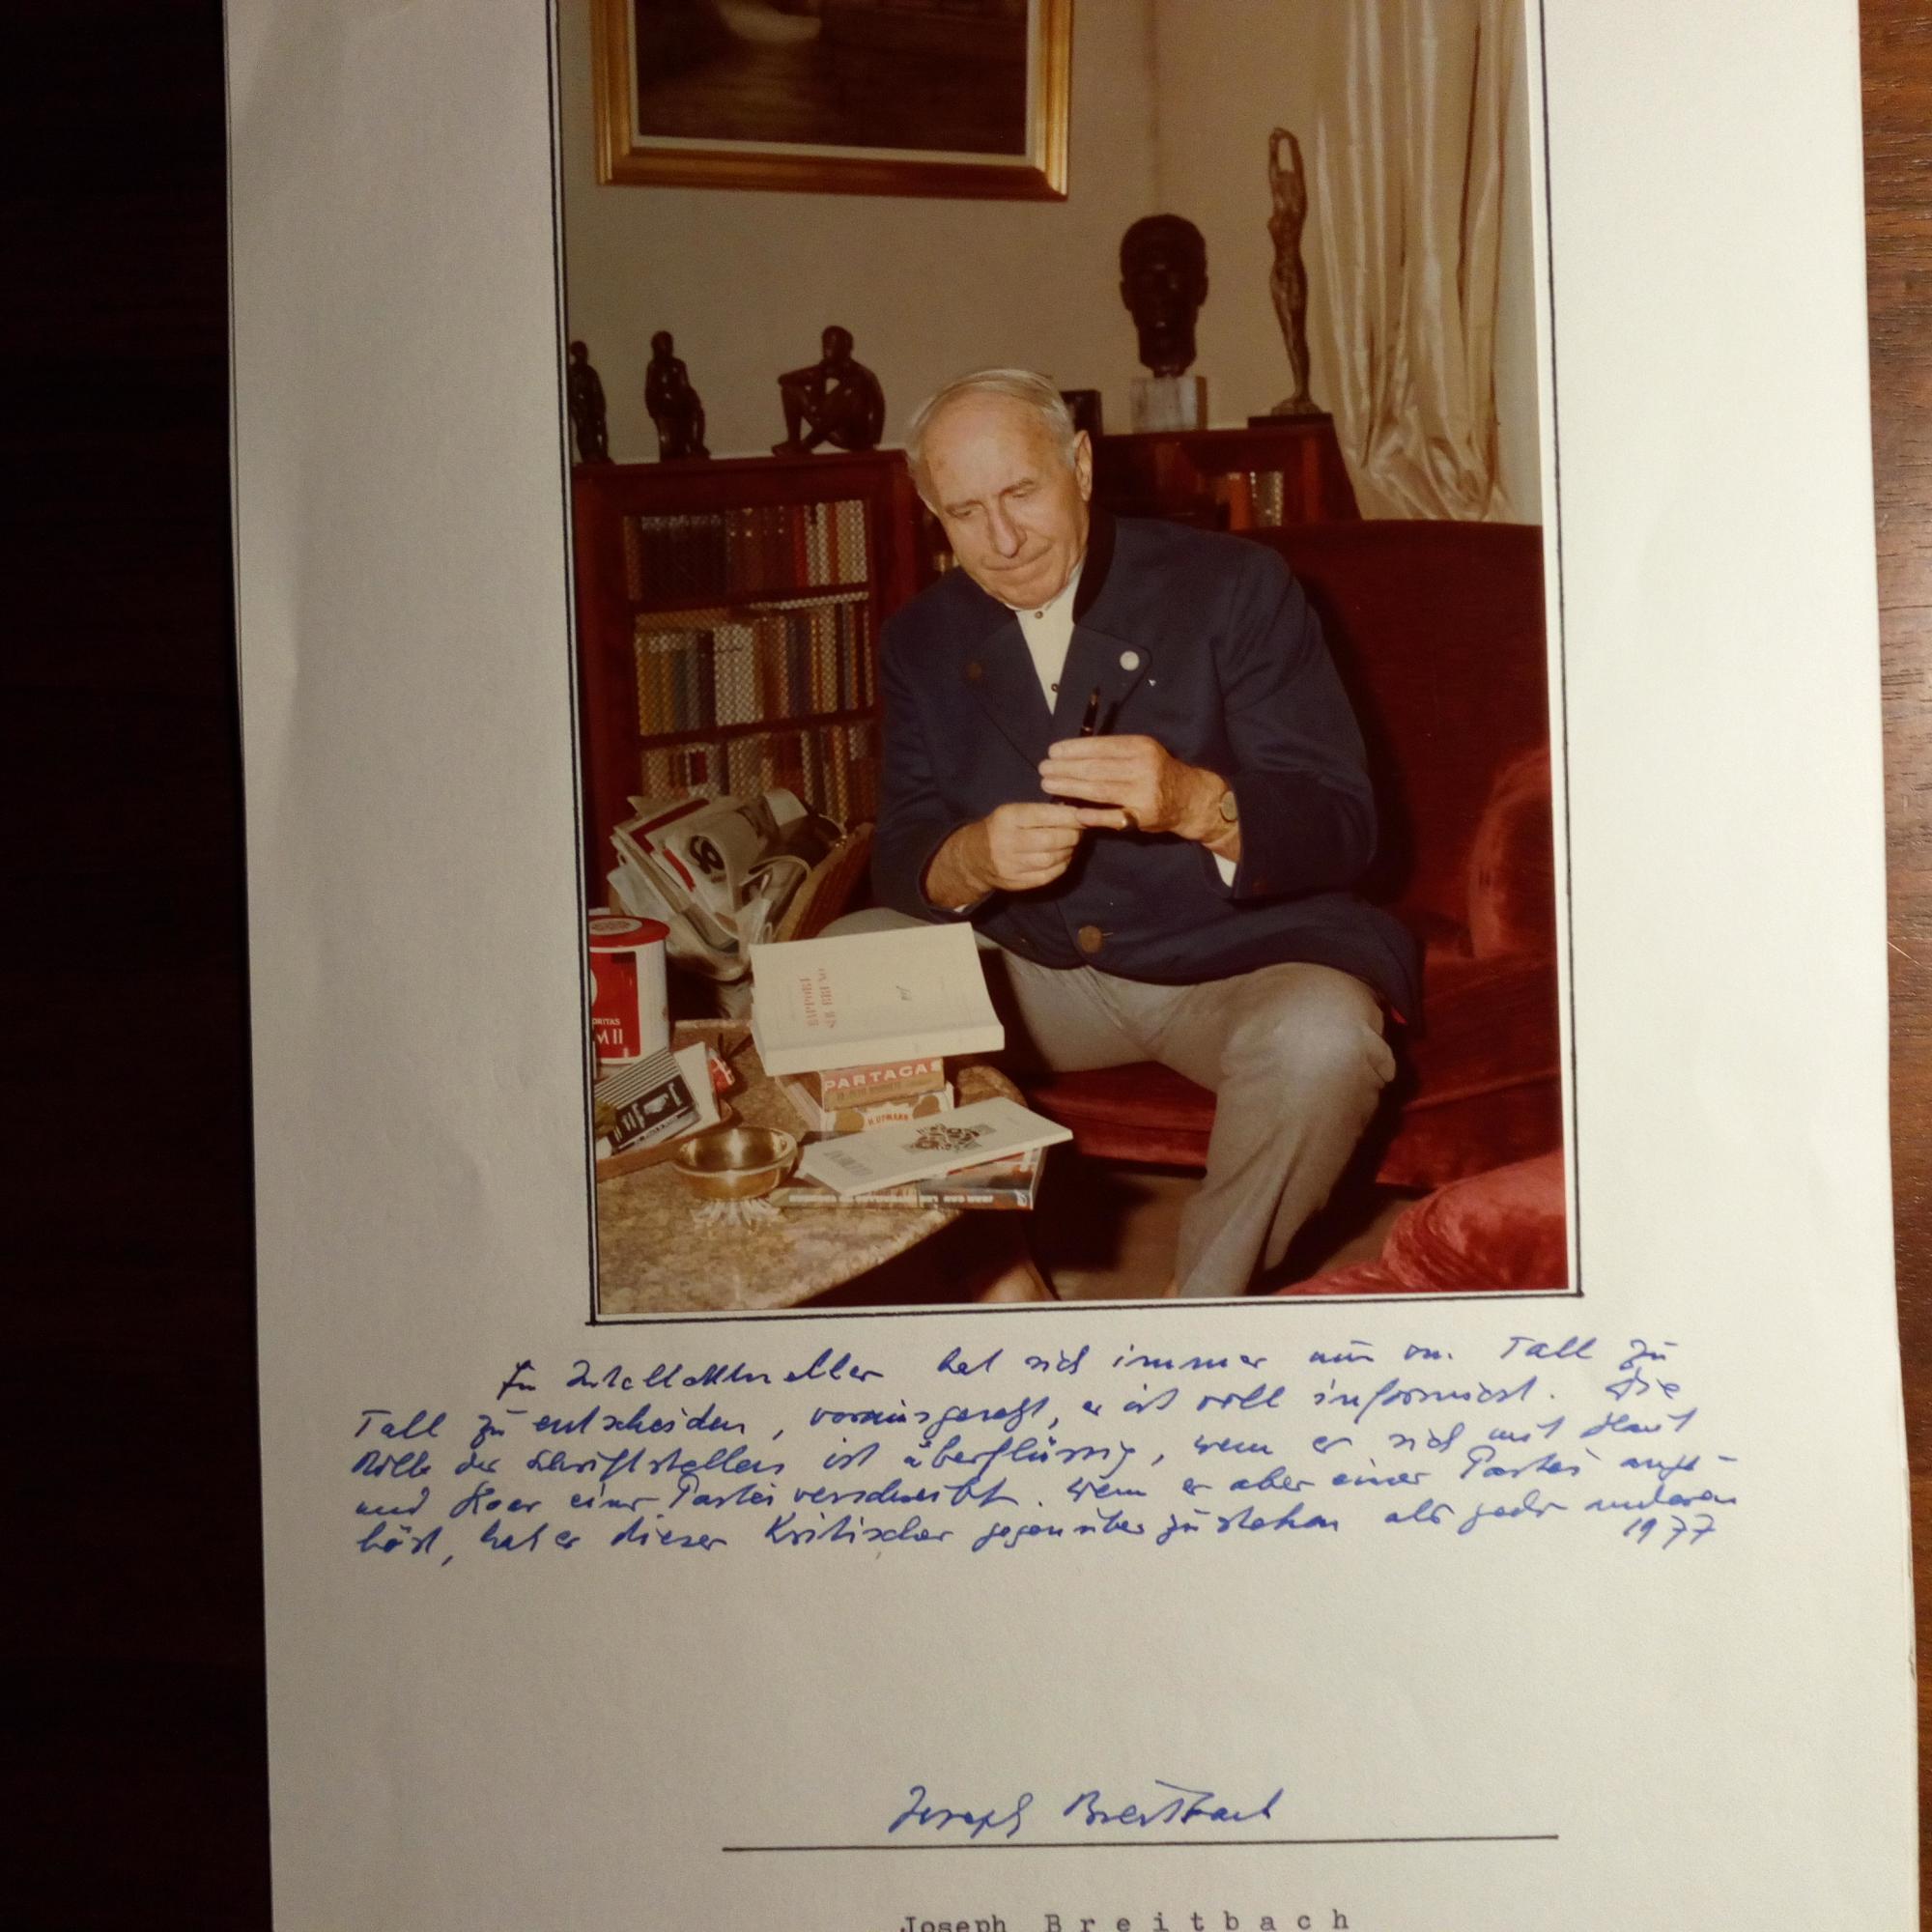 RAPPORT
SUR BRUNO
nrf
ORITAS
M II
PARTAGAS
H. UPMANN
Ein Intellektueller hat sich immer nur von Fall zu
Fall zu entscheiden, vorausgesetzt, er ist voll informiert. Die
Rolle des Schriftstellers ist überflüssig, wenn er sich mit Haut
und Haar einer Partei verschreibt. Wenn er aber einer Partei ange-
hört, hat er dieser kritischer gegenüber zu stehen als jeder anderen
1977
Joseph Breitbach
Joseph Breitbach